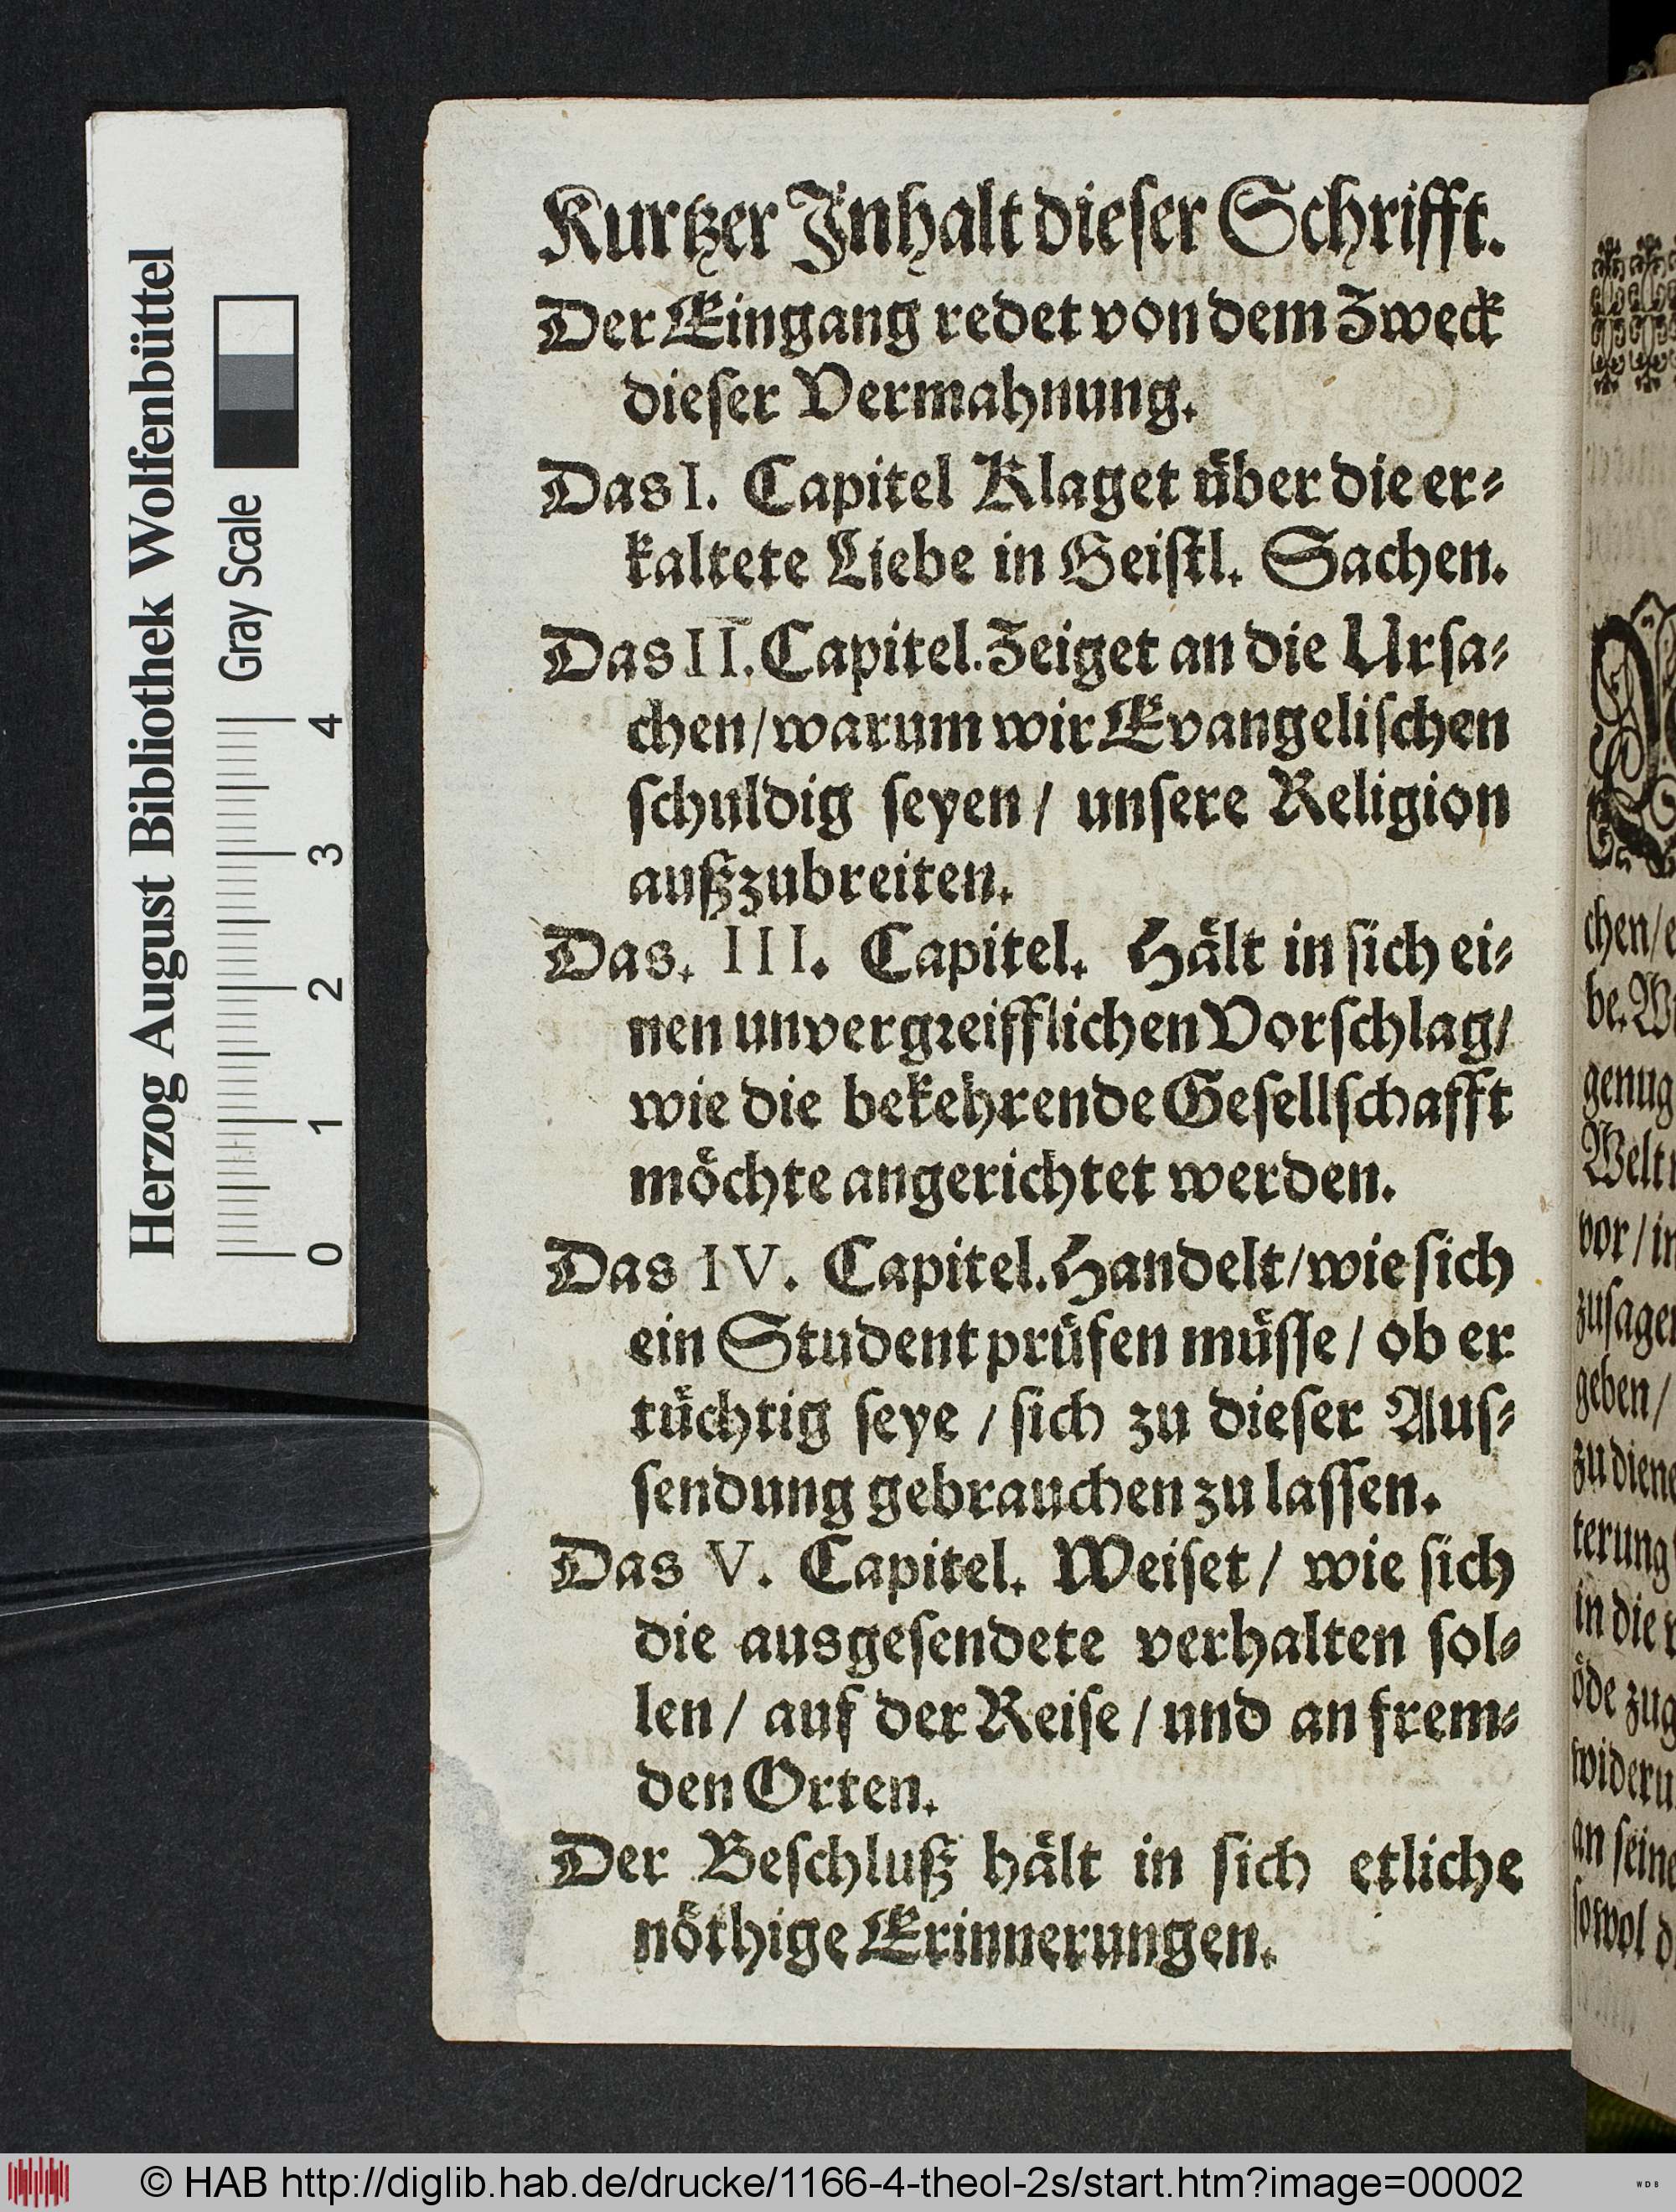 Kurtzer Jnhalt dieser Schrifft.
Der Eingang redet von dem Zweck
dieser Vermahnung.
Das I. Capitel Klaget über die er⸗
kaltete Liebe in Geistl. Sachen.
Das II. Capitel. Zeiget an die Ursa⸗
chen/ warum wir Evangelischen
schuldig seyen/ unsere Religion
außzubreiten.
Das. III. Capitel. Hält in sich ei⸗
nen unvergreifflichen Vorschlag/
wie die bekehrende Gesellschafft
möchte angerichtet werden.
Das IV. Capitel. Handelt/ wie sich
ein Student prüfen müsse/ ob er
tüchtig seye/ sich zu dieser Aus⸗
sendung gebrauchen zu lassen.
Das V. Capitel. Weiset/ wie sich
die ausgesendete verhalten sol⸗
len/ auf der Reise/ und an frem⸗
den Orten.
Der Beschluß hält in sich etliche
nöthige Erinnerungen.
chen/
be.
genug
Welt
vor/
geben/
zu
in die
öde
an
sowol
Herzog August Bibliothek Wolfenbüttel
Gray Scale
0 1 2 3 4
© HAB http://diglib.hab.de/drucke/1166-4-theol-2s/start.htm?image=00002
WDB